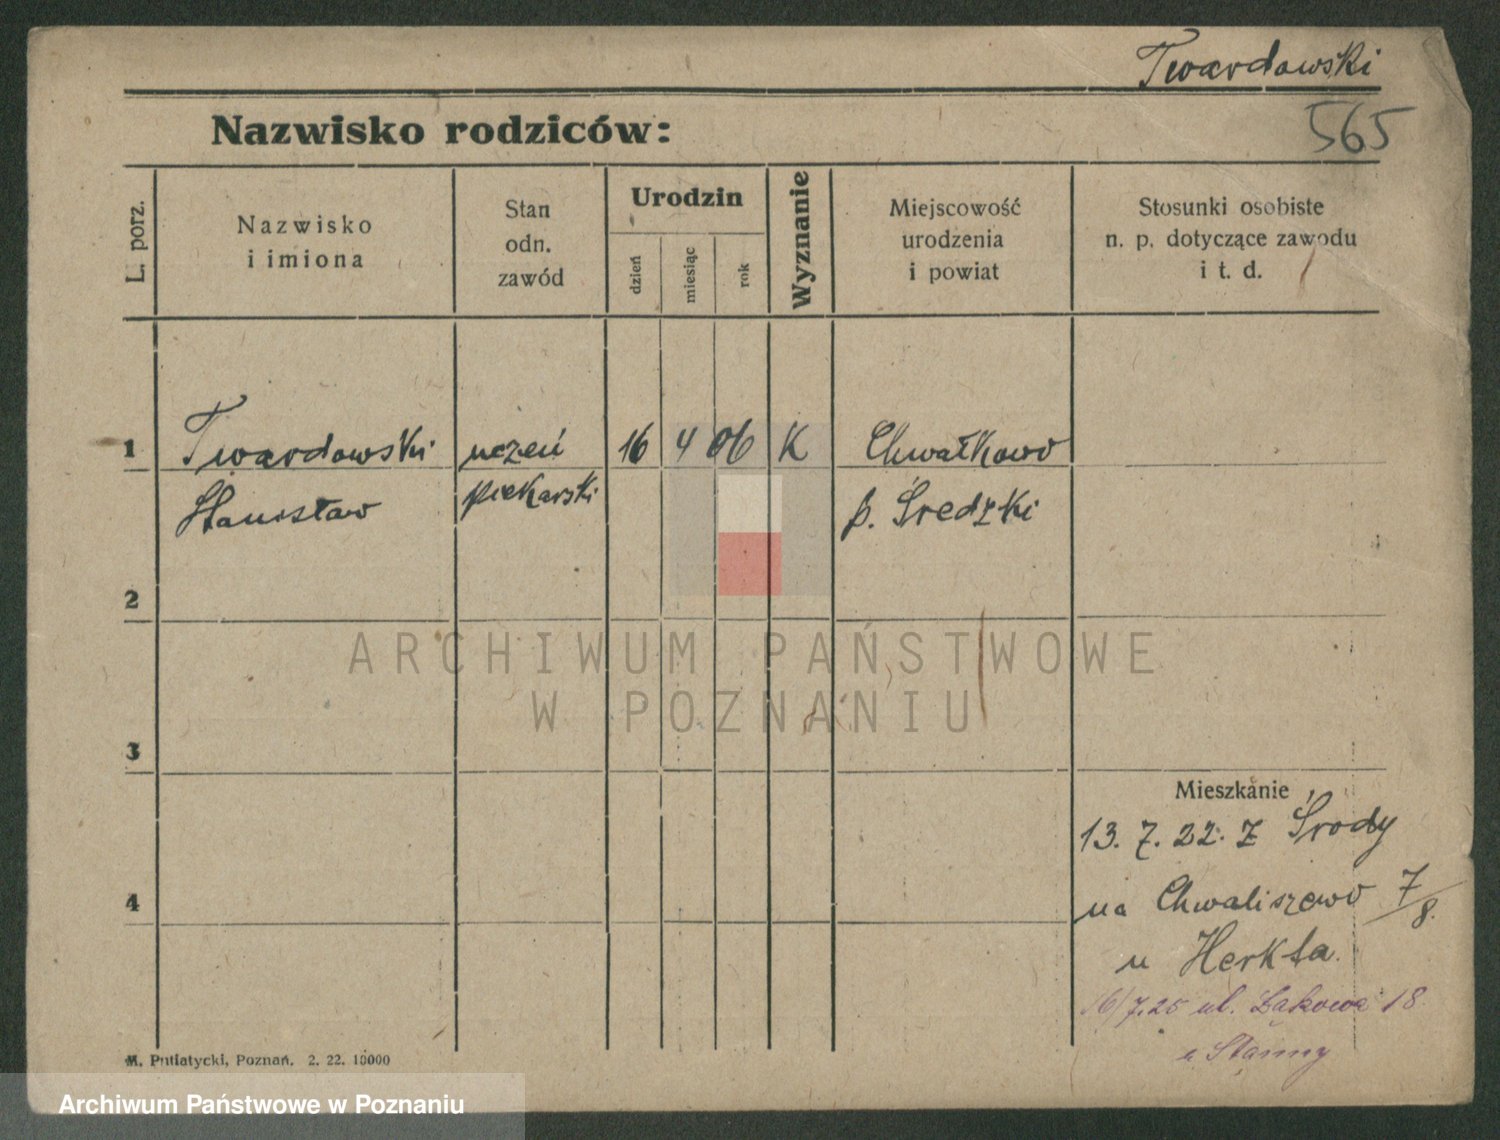 Twardowski
565
Nazwisko rodziców:
L. porz.
Nazwisko
i imiona
Stan
odn.
zawód
Urodzin
dzień
miesiąc
rok
Wyznanie
Miejscowość
urodzenia
i powiat
Stosunki osobiste
n. p. dotyczące zawodu
i t. d.
1 Twardowski uczeń 16 4 06 K Chwałkowo
Stanisław piekarski p. Średzki
2
3
Mieszkanie
13. 7. 22. z Środy
4
na Chwaliszewo 7/8.
u Herkta.
16/7.25 ul. Łąkowa 18
M. Putiatycki, Poznań. 2. 22. 10000
ARCHIWUM PAŃSTWOWE
W POZNANIU
Archiwum Państwowe w Poznaniu